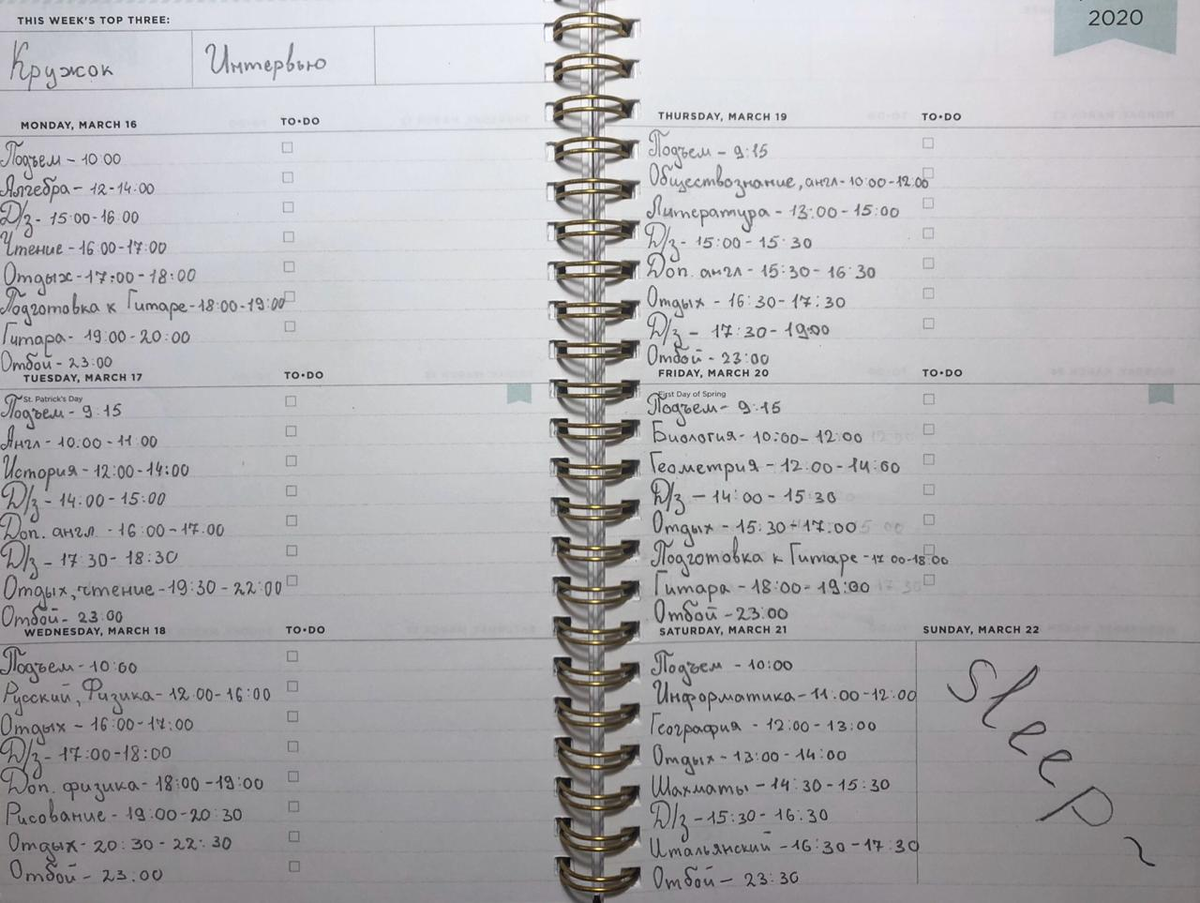 THIS WEEK'S TOP THREE:
Кружок
Интервью
2020
MONDAY, MARCH 16
TO•DO
Подъем - 10:00
Алгебра - 12-14:00
Д/з - 15:00-16:00
Чтение - 16:00-17:00
Отдых - 17:00 - 18:00
Подготовка к Гитаре - 18:00-19:00
Гитара - 19:00 - 20:00
Отбой - 23:00
TUESDAY, MARCH 17
TO•DO
St. Patrick's Day
Подъем - 9:15
Англ - 10:00 - 11:00
История - 12:00 - 14:00
Д/з - 14:00 - 15:00
Доп. англ - 16:00 - 17:00
Д/з - 17:30 - 18:30
Отдых, чтение - 19:30 - 22:00
Отбой - 23:00
WEDNESDAY, MARCH 18
TO•DO
Подъем - 10:00
Русский, Физика - 12:00 - 16:00
Отдых - 16:00 - 17:00
Д/з - 17:00 - 18:00
Доп. физика - 18:00 - 19:00
Рисование - 19:00 - 20:30
Отдых - 20:30 - 22:30
Отбой - 23:00
THURSDAY, MARCH 19
TO•DO
Подъем - 9:15
Обществознание, англ - 10:00 - 12:00
Литература - 13:00 - 15:00
Д/з - 15:00 - 15:30
Доп. англ - 15:30 - 16:30
Отдых - 16:30 - 17:30
Д/з - 17:30 - 19:00
Отбой - 23:00
FRIDAY, MARCH 20
TO•DO
First Day of Spring
Подъем - 9:15
Биология - 10:00 - 12:00
Геометрия - 12:00 - 14:00
Д/з - 14:00 - 15:30
Отдых - 15:30 - 17:00
Подготовка к Гитаре - 17:00 - 18:00
Гитара - 18:00 - 19:00
Отбой - 23:00
SATURDAY, MARCH 21
Подъем - 10:00
Информатика - 11:00 - 12:00
География - 12:00 - 13:00
Отдых - 13:00 - 14:00
Шахматы - 14:30 - 15:30
Д/з - 15:30 - 16:30
Итальянский - 16:30 - 17:30
Отбой - 23:30
SUNDAY, MARCH 22
Sleep ~